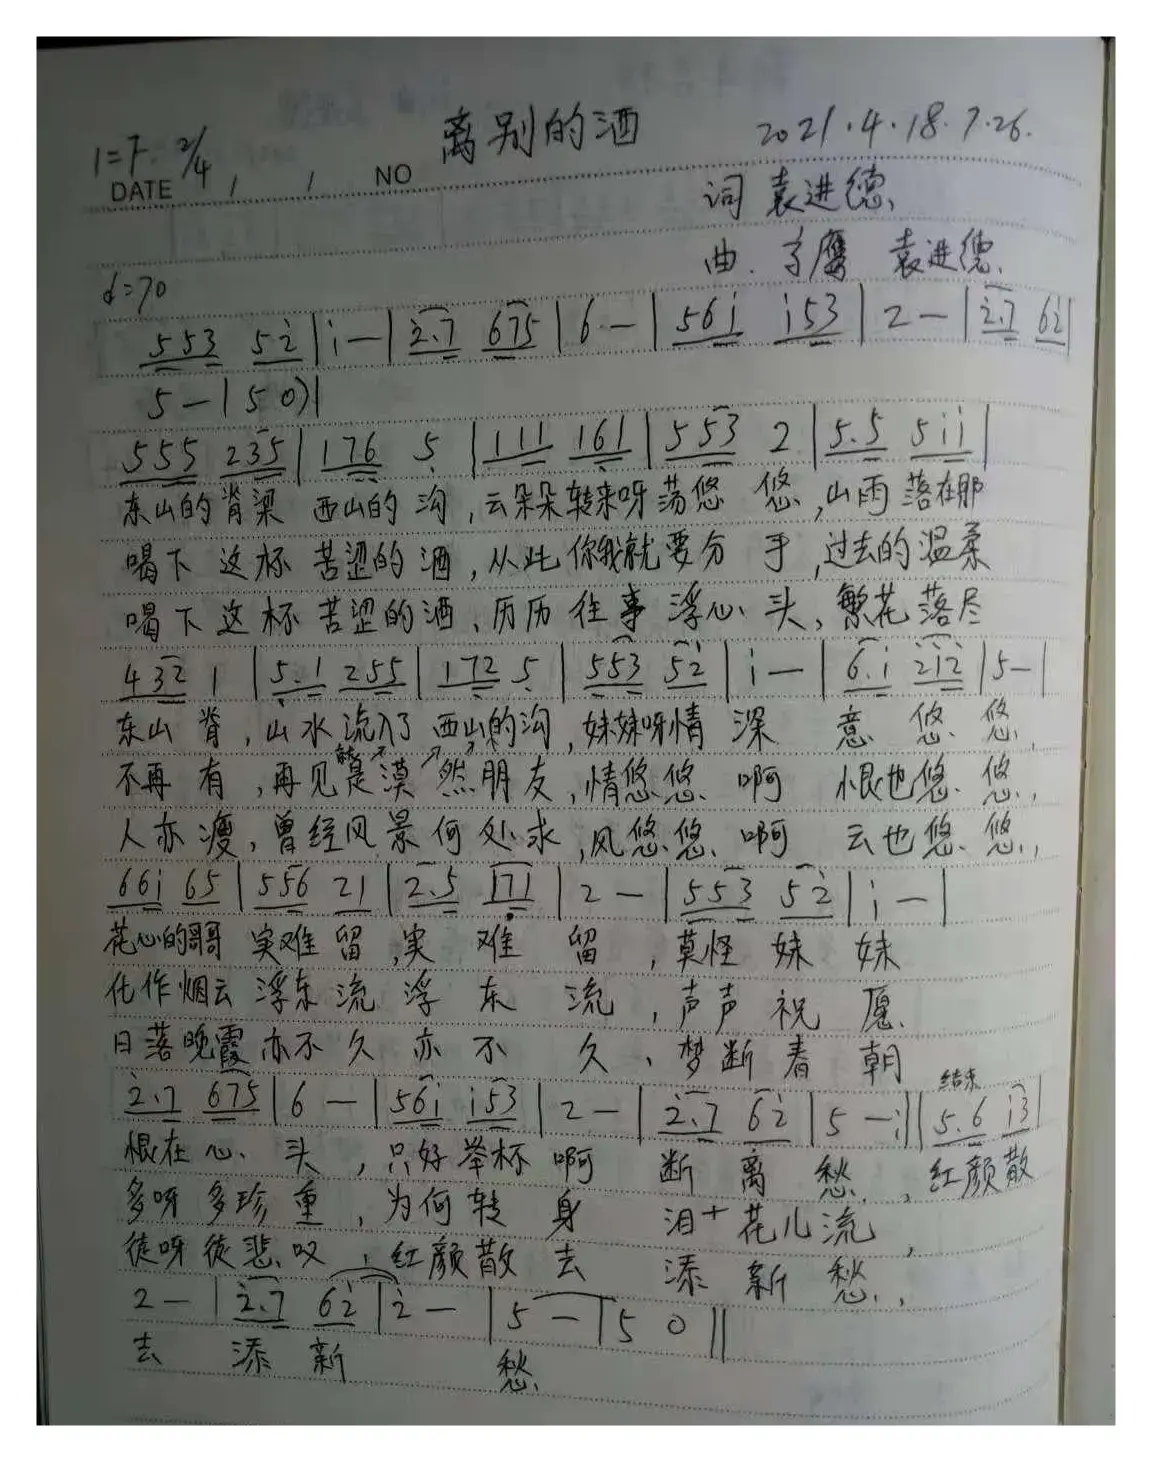 离别的酒 2021.4.18.7.26.
1=F 2/4
DATE / / NO
词 袁进德
曲. 袁进德
♩=70
553 52 | i — | 2.7 675 | 6 — | 561 i53 | 2 — | 2.7 62 |
5 — | 5 0) |
555 235 | 176 5 | 111 161 | 553 2 | 5.5 511 |
东山的脊梁 西山的沟,云朵朵转来呀荡悠 悠,山雨落在那
喝下这杯苦涩的酒,从此你我就要分 手,过去的温柔
喝下这杯苦涩的酒、历历往事浮心头,繁花落尽
432 1 | 5.1 255 | 172 5 | 553 52 | i — | 6.i 212 | 5 — |
东山脊,山水流入了西山的沟,妹妹呀情深 意悠悠,
不再有,再见是漠然朋友,情悠悠 啊 恨也悠悠,
人亦瘦,曾经风景何处求,风悠悠 啊 云也悠悠,
66i 65 | 556 21 | 2.5 171 | 2 — | 553 52 | i — |
花心的哥哥 实难留,实难留,莫怪妹妹
化作烟云浮东流浮东流,声声祝愿
日落晚霞亦不久亦不久、梦断春朝
结束
2.7 675 | 6 — | 56i i53 | 2 — | 2.7 62 | 5 — :|| 5.6 i3 |
恨在心头,只好举杯啊 断离愁,红颜散
多呀多珍重,为何转身 泪花儿流,
徒呀徒悲叹,红颜散去 添新愁,
2 — | 2.7 62 | 2 — | 5 — | 5 0 ||
去 添新 愁